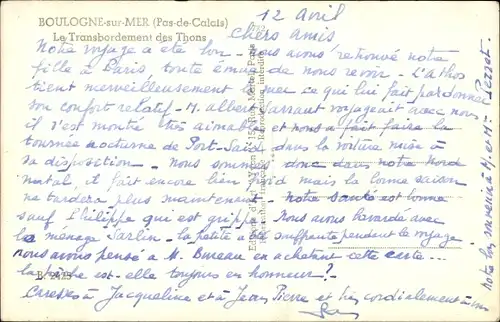 BOULOGNE-sur-MER (Pas-de-Calais)
Le Transbordement des Thons
12 Avril
Chers amis
Notre voyage a été bon - nous avons retrouvé notre
fille à Paris, toute émue de nous revoir. L'Athos
tient merveilleusement la mer ce qui lui fait pardonner
son confort relatif - M. Albert Sarraut voyageait avec nous
il s'est montré très aimable et nous a fait faire la
tournée nocturne de Port-Saïd dans la voiture mise à
sa disposition - nous sommes donc dans notre Nord
natal, il fait encore bien froid mais la bonne saison
ne tardera plus maintenant - notre santé est bonne
sauf Philippe qui est grippé - Nous avons bavardé avec
le ménage Sarlin - la petite a été souffrante pendant le voyage -
nous avons pensé à M. Bureau en achetant cette carte -
la pêche est-elle toujours en honneur?
Caresses à Jacqueline et à Jean Pierre et bien cordialement à vous
nos bons souvenirs à M. et Mme
B. 2423